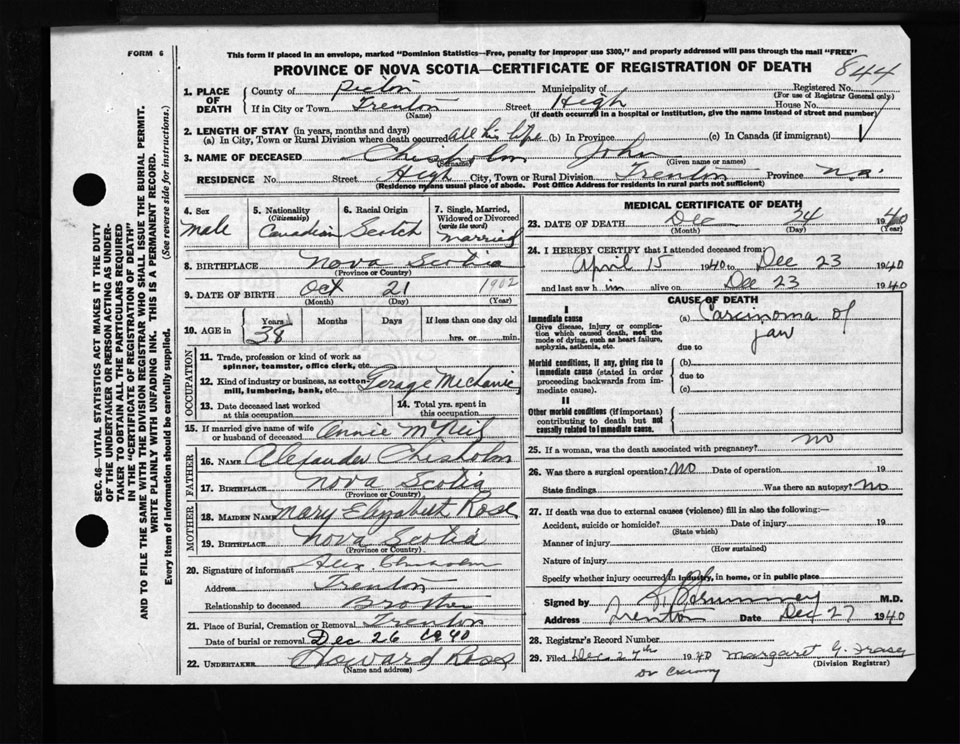 FORM 6
This form if placed in an envelope, marked "Dominion Statistics—Free, penalty for improper use $300," and properly addressed will pass through the mail "FREE"
PROVINCE OF NOVA SCOTIA—CERTIFICATE OF REGISTRATION OF DEATH
844
1. PLACE OF DEATH
County of Pictou Municipality of Registered No.
(For use of Registrar General only)
If in City or Town Trenton Street High House No.
(Name) (If death occurred in a hospital or institution, give the name instead of street and number)
2. LENGTH OF STAY (in years, months and days)
(a) In City, Town or Rural Division where death occurred All his life (b) In Province (c) In Canada (if immigrant)
3. NAME OF DECEASED Chisholm John
(Surname) (Given name or names)
RESIDENCE No. Street High City, Town or Rural Division Trenton Province N.S.
(Residence means usual place of abode. Post Office Address for residents in rural parts not sufficient)
4. Sex Male
5. Nationality (Citizenship) Canadian
6. Racial Origin Scotch
7. Single, Married, Widowed or Divorced (write the word) married
8. BIRTHPLACE Nova Scotia
(Province or Country)
9. DATE OF BIRTH Oct 21 1902
(Month) (Day) (Year)
10. AGE in Years 38 Months Days If less than one day old
hrs. or min.
OCCUPATION
11. Trade, profession or kind of work as spinner, teamster, office clerk, etc.
12. Kind of industry or business, as cotton mill, lumbering, bank, etc. Gerage Mechanic
13. Date deceased last worked at this occupation
14. Total yrs. spent in this occupation
15. If married give name of wife or husband of deceased Annie McNeil
FATHER
16. NAME Alexander Chisholm
17. BIRTHPLACE Nova Scotia
(Province or Country)
MOTHER
18. MAIDEN NAME Mary Elizabeth Rose
19. BIRTHPLACE Nova Scotia
(Province or Country)
20. Signature of informant Alex Chisholm
Address Trenton
Relationship to deceased Brother
21. Place of Burial, Cremation or Removal Trenton
Date of burial or removal Dec 26 1940
22. UNDERTAKER Howard Ross
(Name and address)
MEDICAL CERTIFICATE OF DEATH
23. DATE OF DEATH Dec 24 1940
(Month) (Day) (Year)
24. I HEREBY CERTIFY that I attended deceased from:
April 15 1940 to Dec 23 1940
and last saw him alive on Dec 23 1940
CAUSE OF DEATH
I
Immediate cause (a) Carcinoma of jaw
Give disease, injury or complication which caused death, not the mode of dying, such as heart failure, asphyxia, asthenia, etc.
due to
Morbid conditions, if any, giving rise to immediate cause (stated in order proceeding backwards from immediate cause).
(b)
due to
(c)
II
Other morbid conditions (if important) contributing to death but not causally related to immediate cause.
25. If a woman, was the death associated with pregnancy? no
26. Was there a surgical operation? no Date of operation 19
State findings Was there an autopsy? no
27. If death was due to external causes (violence) fill in also the following:—
Accident, suicide or homicide? Date of injury 19
(State which)
Manner of injury
(How sustained)
Nature of injury
Specify whether injury occurred in industry, in home, or in public place
Signed by M.D.
Address Trenton Date Dec 27 1940
28. Registrar's Record Number
29. Filed Dec 27th 1940 Margaret G. Fraser
(Division Registrar)
SEC. 46—VITAL STATISTICS ACT MAKES IT THE DUTY OF THE UNDERTAKER OR PERSON ACTING AS UNDERTAKER TO OBTAIN ALL THE PARTICULARS REQUIRED IN THE "CERTIFICATE OF REGISTRATION OF DEATH" AND TO FILE THE SAME WITH THE DIVISION REGISTRAR WHO SHALL ISSUE THE BURIAL PERMIT.
WRITE PLAINLY WITH UNFADING INK. THIS IS A PERMANENT RECORD.
Every item of information should be carefully supplied. (See reverse side for instructions.)